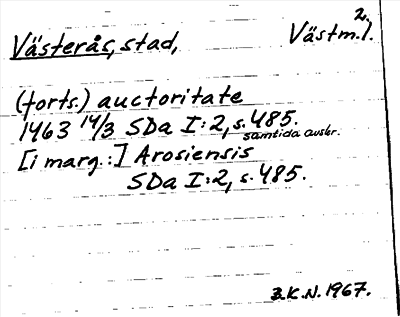 2.
Västerås, stad, Västm.l.
(forts.) auctoritate
1463 14/3 SDa I:2, s. 485.
samtida avskr.
[i marg.:] Arosiensis
SDa I:2, s. 485.
B.K.N. 1967.